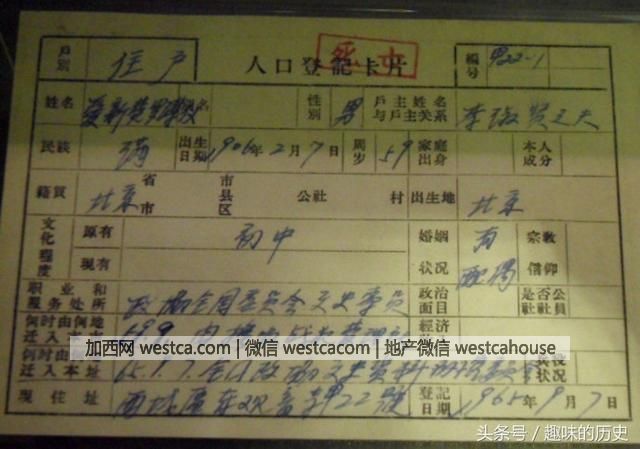 戶別 住户 人口登記卡片 死亡 編号 甲22-1
姓名 愛新覺罗溥 性别 男 戶主姓名与戶主关系 李淑贤之夫
民族 满 出生日期 1906年2月7日 周岁 59 家庭出身 本人成分
籍貫 北京 省市 市县区 公社 村 出生地 北京
文化程度 原有 初中 婚姻状况 有配偶 宗教信仰
现有
职业和服务处所 政协全国委员会文史专员 政治面目 是否公社社员
何时由何地迁入本市 經済
加西网 westca.com | 微信 westcacom | 地产微信 westcahouse
何时由何地迁入本址 65.9.7. 全国政协文史资料 状况
现住址 西城區东观音寺22號 登記日期 1965年9月7日
头条号 / 趣味的历史